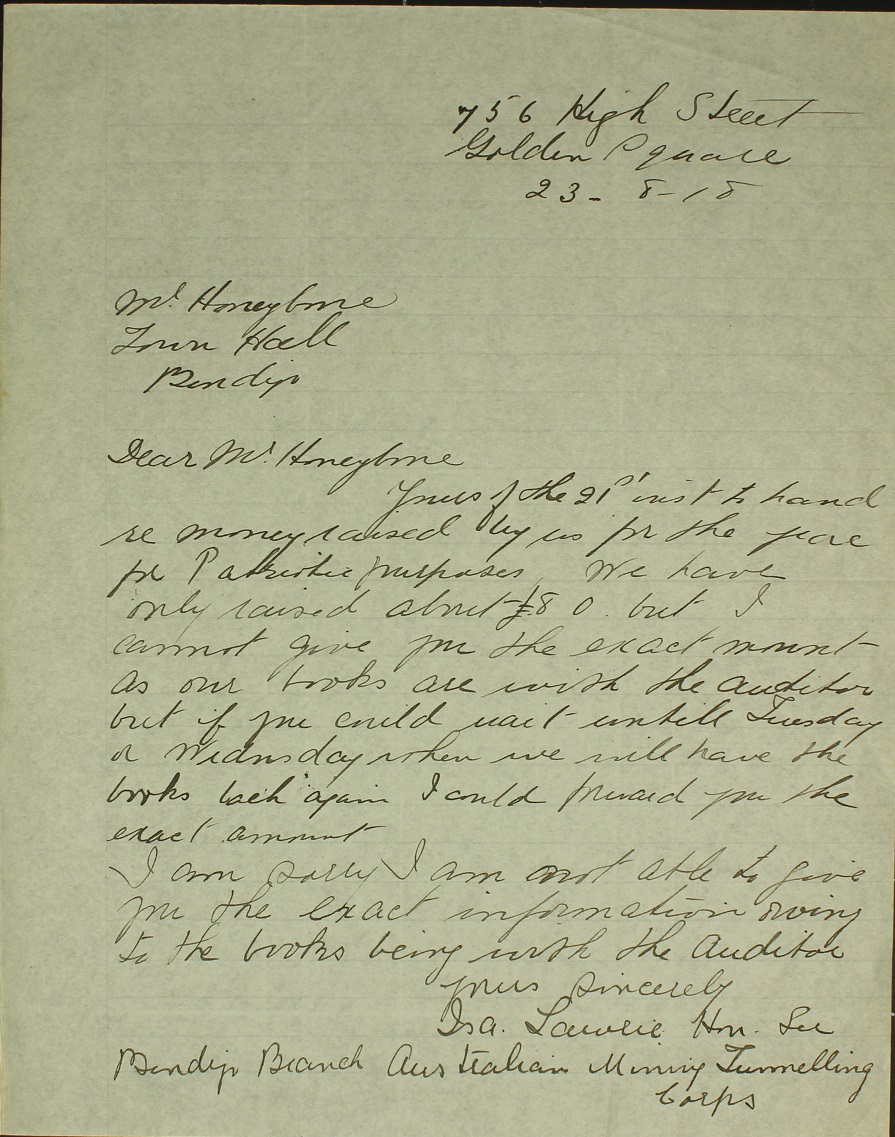 756 High Street
Golden Square
23-8-18
Mr. Honeybone
Town Hall
Bendigo
Dear Mr. Honeybone
Yours of the 21st inst to hand
re money raised by us for the year
for Patriotic purposes. We have
only raised about £80. but I
cannot give you the exact mount
as our books are with the auditor
but if you could wait untill Tuesday
or Wednsday when we will have the
books back again I could forward you the
exact amount
I am sorry I am not able to give
you the exact information owing
to the books being with the Auditor
yours sincerely
Isa. Lawrie Hon. Sec
Bendigo Branch Australian Mining Tunnelling
Corps